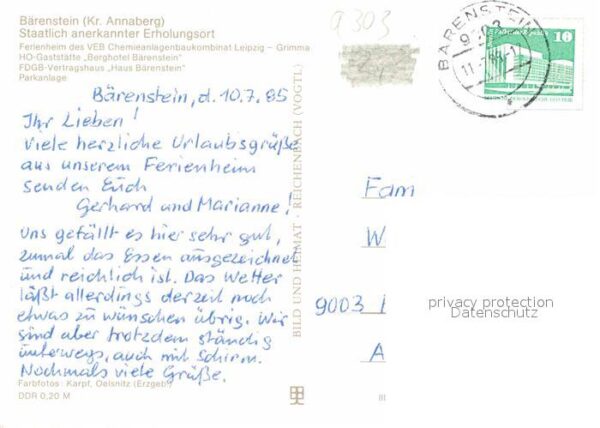 Bärenstein (Kr. Annaberg)
Staatlich anerkannter Erholungsort
Ferienheim des VEB Chemieanlagenbaukombinat Leipzig – Grimma
HO-Gaststätte „Berghotel Bärenstein"
FDGB-Vertragshaus „Haus Bärenstein"
Parkanlage
Bärenstein, d. 10.7.85
Ihr Lieben!
Viele herzliche Urlaubsgrüße
aus unserem Ferienheim
senden Euch
Gerhard und Marianne!
Uns gefällt es hier sehr gut,
zumal das Essen ausgezeichnet
und reichlich ist. Das Wetter
läßt allerdings derzeit noch
etwas zu wünschen übrig. Wir
sind aber trotzdem ständig
unterwegs, auch mit Schirm.
Nochmals viele Grüße.
Farbfotos: Karpf, Oelsnitz (Erzgeb)
DDR 0,20 M
BILD UND HEIMAT · REICHENBACH (VOGTL)
9303
BÄRENSTEIN
9303
10
Fam
W
9003
A
privacy protection
Datenschutz